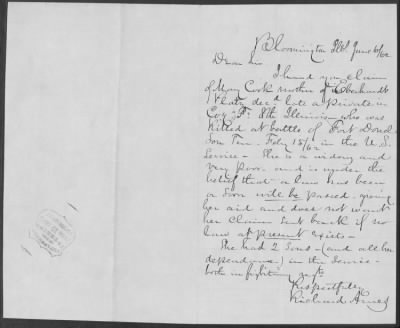 Bloomington Ill. June 6/62
Dear Sir
I hand you claim
of Mary Cook mother of Eberhardt
Plate decd late a private in
Coy "F" 8th Illinois who was
killed at battle of Fort Donel
son Ten. Feby 15/62 in the U.S.
Service - She is a widow and
very poor and is under the
belief that a law has been
or soon will be passed giving
her aid and does not want
her claim sent back if no
law at present exists -
She had 2 Sons - (and all her
dependance) in the Service -
both in fighting regts
Respectfully
Richard